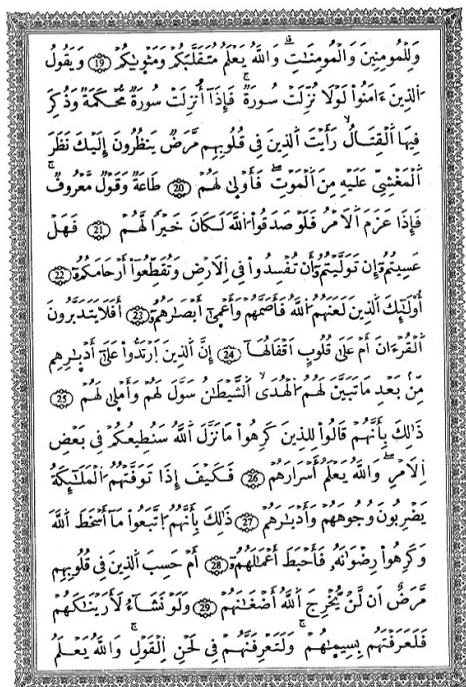 وَلِلْمُومِنِينَ وَالْمُومِنَٰتِۖ وَاللَّهُ يَعْلَمُ مُتَقَلَّبَكُمْ وَمَثْوٜيٰكُمْۖ 19 وَيَقُولُ
اَ۬لذِينَ ءَامَنُواْ لَوْلَا نُزِّلَتْ سُورَةٞۖ فَإِذَا أُنزِلَتْ سُورَةٞ مُّحْكَمَةٞ وَذُكِرَ
فِيهَا اَ۬لْقِتَالُ رَأَيْتَ اَ۬لذِينَ فِي قُلُوبِهِم مَّرَضٞ يَنظُرُونَ إِلَيْكَ نَظَرَ
اَ۬لْمَغْشِيِّ عَلَيْهِ مِنَ اَ۬لْمَوْتِۖ فَأَوْلٜىٰ لَهُمْۖ 20 طَاعَةٞ وَقَوْلٞ مَّعْرُوفٞۖ
فَإِذَا عَزَمَ اَ۬لَامْرُ فَلَوْ صَدَقُواْ اُ۬للَّهَ لَكَانَ خَيْراٗ لَّهُمْۖ 21 فَهَلْ
عَسِيتُمُۥٓ إِن تَوَلَّيْتُمُۥٓ أَن تُفْسِدُواْ فِي اِ۬لَارْضِ وَتُقَطِّعُوٓاْ أَرْحَامَكُمُۥٓۖ 22
أُوْلَٰٓئِكَ اَ۬لذِينَ لَعَنَهُمُ اُ۬للَّهُ فَأَصَمَّهُمْ وَأَعْمٜىٰٓ أَبْصَٰرَهُمُۥٓۖ 23 أَفَلَا يَتَدَبَّرُونَ
اَ۬لْقُرْءَانَ أَمْ عَلَىٰ قُلُوبٍ اَقْفَالُهَآۖ 24 إِنَّ اَ۬لذِينَ اَ۪رْتَدُّواْ عَلَىٰٓ أَدْبٰٜرِهِم
مِّنۢ بَعْدِ مَا تَبَيَّنَ لَهُمُ اُ۬لْهُدَي اَ۬لشَّيْطَٰنُ سَوَّلَ لَهُمْ وَأَمْلٜىٰ لَهُمْۖ 25
ذَٰلِكَ بِأَنَّهُمْ قَالُواْ لِلذِينَ كَرِهُواْ مَا نَزَّلَ اَ۬للَّهُ سَنُطِيعُكُمْ فِي بَعْضِ
اِ۬لَامْرِۖ وَاللَّهُ يَعْلَمُ أَسْرَارَهُمْۖ 26 فَكَيْفَ إِذَا تَوَفَّتْهُمُ اُ۬لْمَلَٰٓئِكَةُ
يَضْرِبُونَ وُجُوهَهُمْ وَأَدْبَٰرَهُمْۖ 27 ذَٰلِكَ بِأَنَّهُمُ اُ۪تَّبَعُواْ مَآ أَسْخَطَ اَ۬للَّهَ
وَكَرِهُواْ رِضْوَٰنَهُۥ فَأَحْبَطَ أَعْمَٰلَهُمُۥٓۖ 28 أَمْ حَسِبَ اَ۬لذِينَ فِي قُلُوبِهِم
مَّرَضٌ اَن لَّنْ يُّخْرِجَ اَ۬للَّهُ أَضْغَٰنَهُمْۖ 29 وَلَوْ نَشَآءُ لَأَرَيْنَٰكَهُمْ
فَلَعَرَفْتَهُم بِسِيمٰٜهُمْۖ وَلَتَعْرِفَنَّهُمْ فِي لَحْنِ اِ۬لْقَوْلِۖ وَاللَّهُ يَعْلَمُ